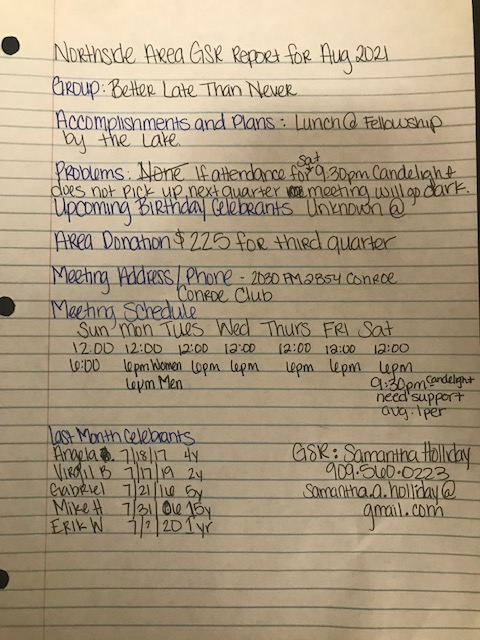 Northside Area GSR Report for Aug 2021
Group: Better Late Than Never
Accomplishments and Plans: Lunch @ Fellowship
by the Lake.
Problems: None If attendance for Sat 9:30pm Candelight
does not pick up next quarter meeting will go dark.
Upcoming Birthday Celebrants Unknown @
Area Donation $225 for third quarter
Meeting Address/Phone - 2030 FM 2854 Conroe
Conroe Club
Meeting Schedule
Sun Mon Tues Wed Thurs FRI Sat
12:00 12:00 12:00 12:00 12:00 12:00 12:00
6:00 6pm Women 6pm 6pm 6pm 6pm 6pm
6pm Men 9:30pm Candelight
need support
avg. 1per
Last Month Celebrants
Angela B. 7/18/17 4y
Virgil B 7/17/19 2y
Gabriel 7/21/16 5y
Mike H 7/31/06 15y
Erik W 7/?/20 1yr
GSR: Samantha Holliday
909.560.0223
samantha.a.holliday@
gmail.com